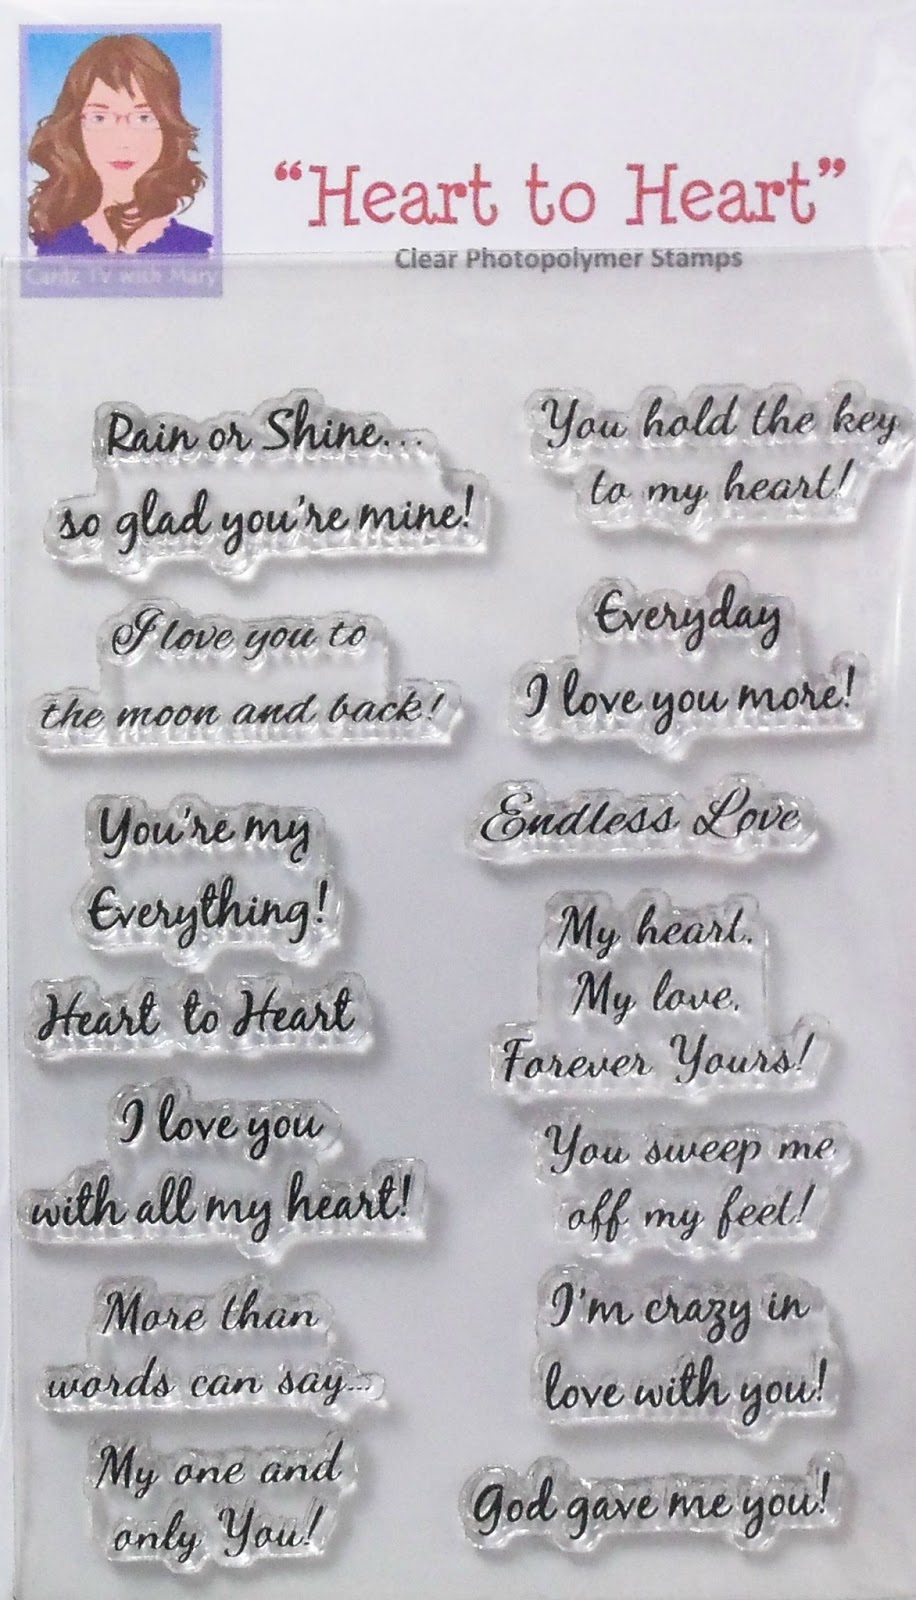 "Heart to Heart"
Clear Photopolymer Stamps
Cardz TV with Mary
Rain or Shine...
so glad you're mine!
I love you to
the moon and back!
You're my
Everything!
Heart to Heart
I love you
with all my heart!
More than
words can say...
My one and
only You!
You hold the key
to my heart!
Everyday
I love you more!
Endless Love
My heart,
My love,
Forever Yours!
You sweep me
off my feet!
I'm crazy in
love with you!
God gave me you!